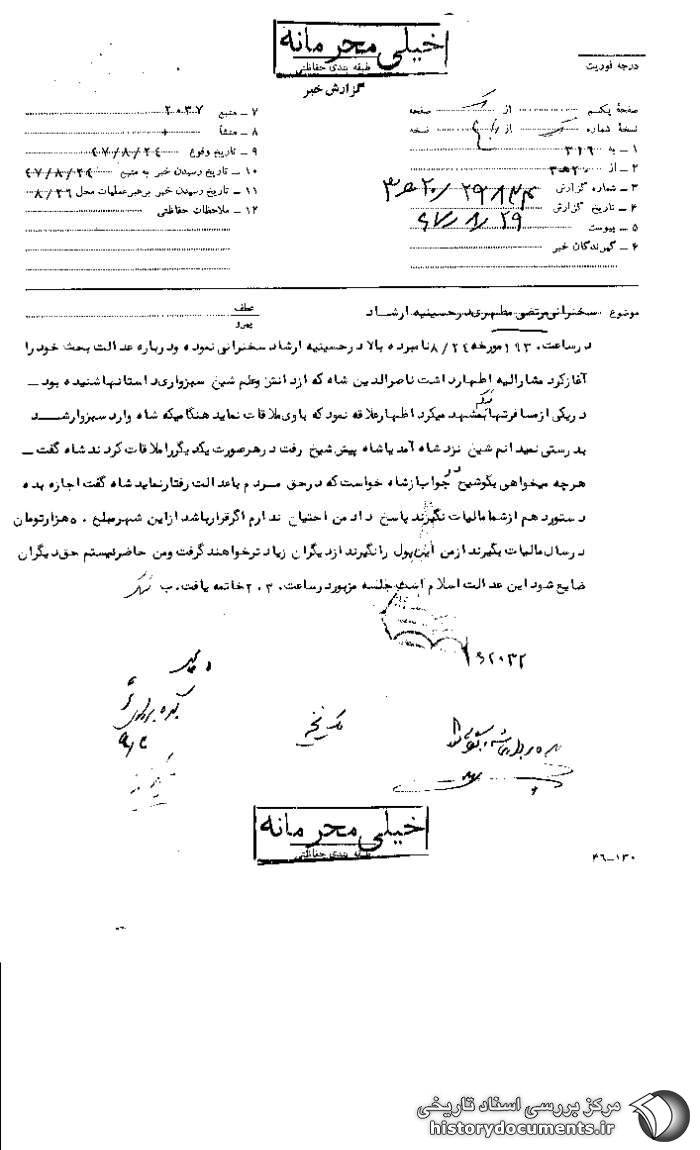 خیلی محرمانه
طبقه بندی حفاظتی
گزارش خبر
درجه فوریت
صفحهٔ یکم از صفحه
نسخهٔ شماره از نسخه
۱ ــ به ۳۱۶
۲ ــ از ۲۰ ه‍ ۳
۳ ــ شماره گزارش
۴ ــ تاریخ گزارش ۴۷/۸/۲۹
۵ ــ پیوست
۶ ــ گیرندگان خبر
۷ ــ منبع ۲۰۳۷
۸ ــ منشأ
۹ ــ تاریخ وقوع ۴۷/۸/۲۴
۱۰ ــ تاریخ رسیدن خبر به منبع ۴۷/۸/۲۴
۱۱ ــ تاریخ رسیدن خبر برهبر عملیات محل ۸/۲۶
۱۲ ــ ملاحظات حفاظتی
موضوع سخنرانی مرتضی مطهری در حسینیه ارشاد
عطف
پیرو
در ساعت ۱۹۳۰ مورخه ۸/۲۴ نامبرده بالا در حسینیه ارشاد سخنرانی نموده و درباره عدالت بحث خود را
آغاز کرد مشارالیه اظهار داشت ناصرالدین شاه که از دانش و علم شیخ سبزواری داستانها شنیده بود ــ
در یکی از مسافرتها بمشهد میکرد اظهار علاقه نمود که با وی ملاقات نماید هنگامیکه شاه وارد سبزوار شد
بدرستی نمیدانم شیخ نزد شاه آمد یا شاه پیش شیخ رفت در هر صورت یکدیگر را ملاقات کردند شاه گفت ــ
هرچه میخواهی بگو شیخ در جواب از شاه خواست که در حق مردم با عدالت رفتار نماید شاه گفت اجازه بده
دستور دهم از شما مالیات نگیرند پاسخ داد من احتیاج ندارم اگر قرار باشد از این شهر مبلغ ۵۰ هزار تومان
در سال مالیات بگیرند از من این پول را نگیرند از دیگران زیادتر خواهند گرفت و من حاضر نیستم حق دیگران
ضایع شود این عدالت اسلام است جلسه مزبور در ساعت ۲۰۳۰ خاتمه یافت. ب
خیلی محرمانه
طبقه بندی حفاظتی
۴۶ــ۱۳۰
مرکز بررسی اسناد تاریخی
historydocuments.ir